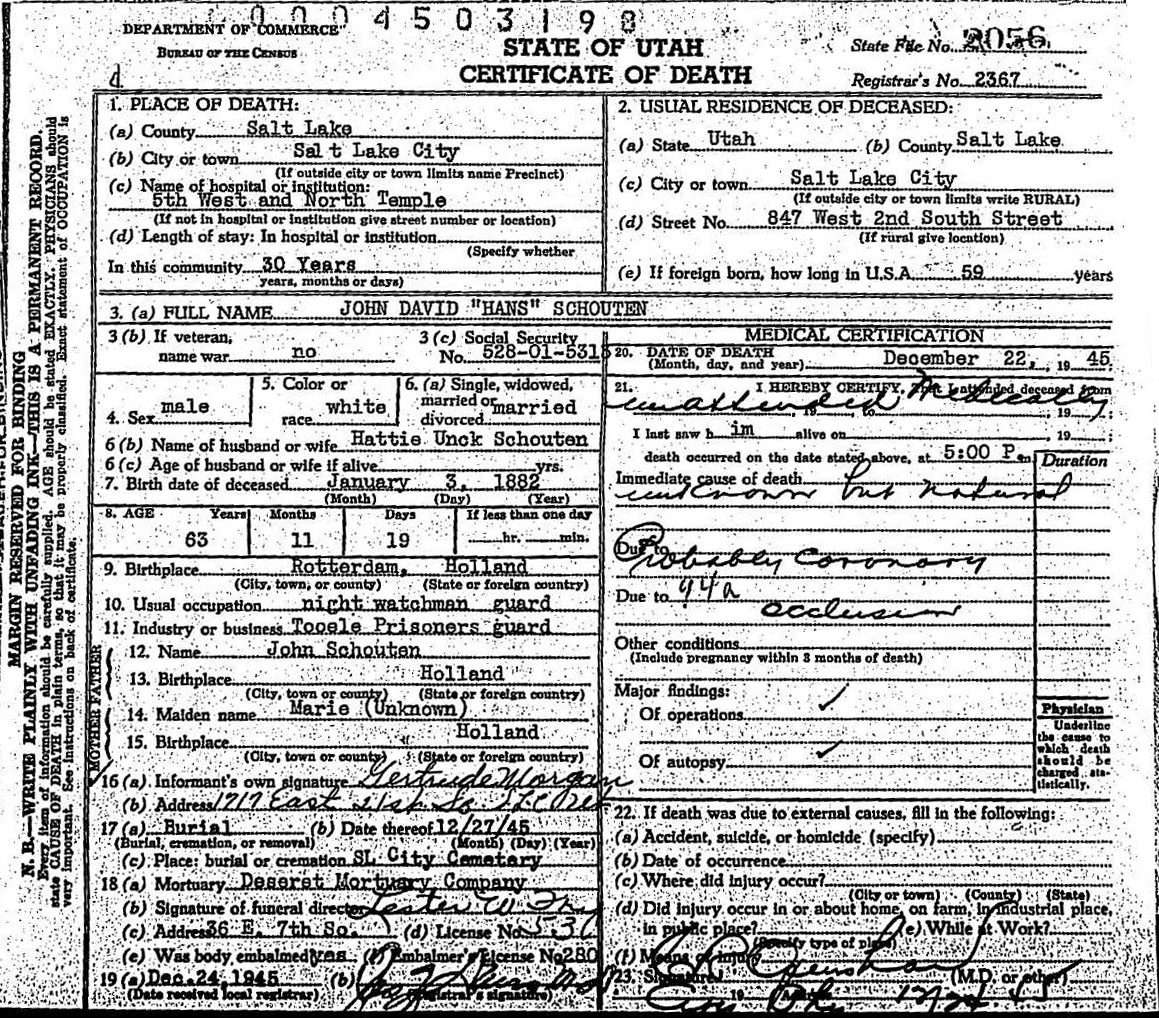 0004503198
DEPARTMENT OF COMMERCE
BUREAU OF THE CENSUS
STATE OF UTAH
CERTIFICATE OF DEATH
State File No. 2056
Registrar's No. 2367
d
MARGIN RESERVED FOR BINDING
N. B.—WRITE PLAINLY WITH UNFADING INK—THIS IS A PERMANENT RECORD.
Every item of information should be carefully supplied. AGE should be stated EXACTLY. PHYSICIANS should
state CAUSE OF DEATH in plain terms, so that it may be properly classified. Exact statement of OCCUPATION is
very important. See instructions on back of certificate.
1. PLACE OF DEATH:
(a) County Salt Lake
(b) City or town Salt Lake City
(If outside city or town limits name Precinct)
(c) Name of hospital or institution:
5th West and North Temple
(If not in hospital or institution give street number or location)
(d) Length of stay: In hospital or institution
(Specify whether
In this community 30 Years
years, months or days)
2. USUAL RESIDENCE OF DECEASED:
(a) State Utah (b) County Salt Lake
(c) City or town Salt Lake City
(If outside city or town limits write RURAL)
(d) Street No. 847 West 2nd South Street
(If rural give location)
(e) If foreign born, how long in U.S.A. 59 years
3. (a) FULL NAME JOHN DAVID "HANS" SCHOUTEN
3 (b) If veteran,
name war no
3 (c) Social Security
No. 528-01-531
4. Sex male
5. Color or
race white
6. (a) Single, widowed,
married or
divorced married
6 (b) Name of husband or wife Hattie Unck Schouten
6 (c) Age of husband or wife if alive yrs.
7. Birth date of deceased January 3, 1882
(Month) (Day) (Year)
8. AGE Years Months Days If less than one day
63 11 19 hr. min.
9. Birthplace Rotterdam, Holland
(City, town, or county) (State or foreign country)
10. Usual occupation night watchman guard
11. Industry or business Tooele Prisoners guard
FATHER
12. Name John Schouten
13. Birthplace Holland
(City, town or county) (State or foreign country)
MOTHER
14. Maiden name Marie (Unknown)
15. Birthplace Holland
(City, town or county) (State or foreign country)
16 (a). Informant's own signature Gertrude Morgan
(b) Address 1717 East 21st So
17 (a) Burial (b) Date thereof 12/27/45
(Burial, cremation, or removal) (Month) (Day) (Year)
(c) Place: burial or cremation SL City Cemetary
18 (a) Mortuary Deseret Mortuary Company
(b) Signature of funeral director Lester W
(c) Address 36 E. 7th So. (d) License No. 530
(e) Was body embalmed yes (f) Embalmer's License No 280
19 (a) Dec. 24, 1945 (b)
(Date received local registrar) (Registrar's signature)
MEDICAL CERTIFICATION
20. DATE OF DEATH
(Month, day, and year) December 22, 1945
21. I HEREBY CERTIFY, That I attended deceased from
unattended medically
19 , to , 19 ;
I last saw h im alive on , 19 ;
death occurred on the date stated above, at 5:00 P m
Duration
Immediate cause of death
unknown but natural
Due to
Probably coronary
Due to 94a
occlusion
Other conditions
(Include pregnancy within 3 months of death)
Major findings:
Of operations ✓
Of autopsy ✓
Physician
Underline
the cause to
which death
should be
charged sta-
tistically.
22. If death was due to external causes, fill in the following:
(a) Accident, suicide, or homicide (specify)
(b) Date of occurrence
(c) Where did injury occur?
(City or town) (County) (State)
(d) Did injury occur in or about home, on farm, in industrial place,
in public place? (e) While at Work?
(Specify type of place)
(f) Means of injury
23. Signature (M.D. or other)
12/24 45